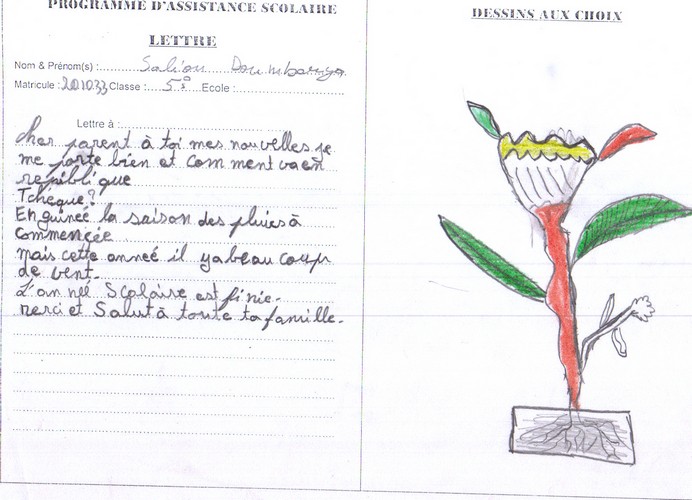 PROGRAMME D'ASSISTANCE SCOLAIRE
LETTRE
Nom & Prénom(s) : Saliou Doumbouya
Matricule : 201033 Classe : 5è Ecole :
Lettre à :
cher parent à toi mes nouvelles je
me porte bien et comment va en
république
Tchéque?
En guinée la saison des pluies à
commençée
mais cette année il ya beau coup
de vent.
L'année Scolaire est finie.
merci et Salut à toute ta famille.
DESSINS AUX CHOIX